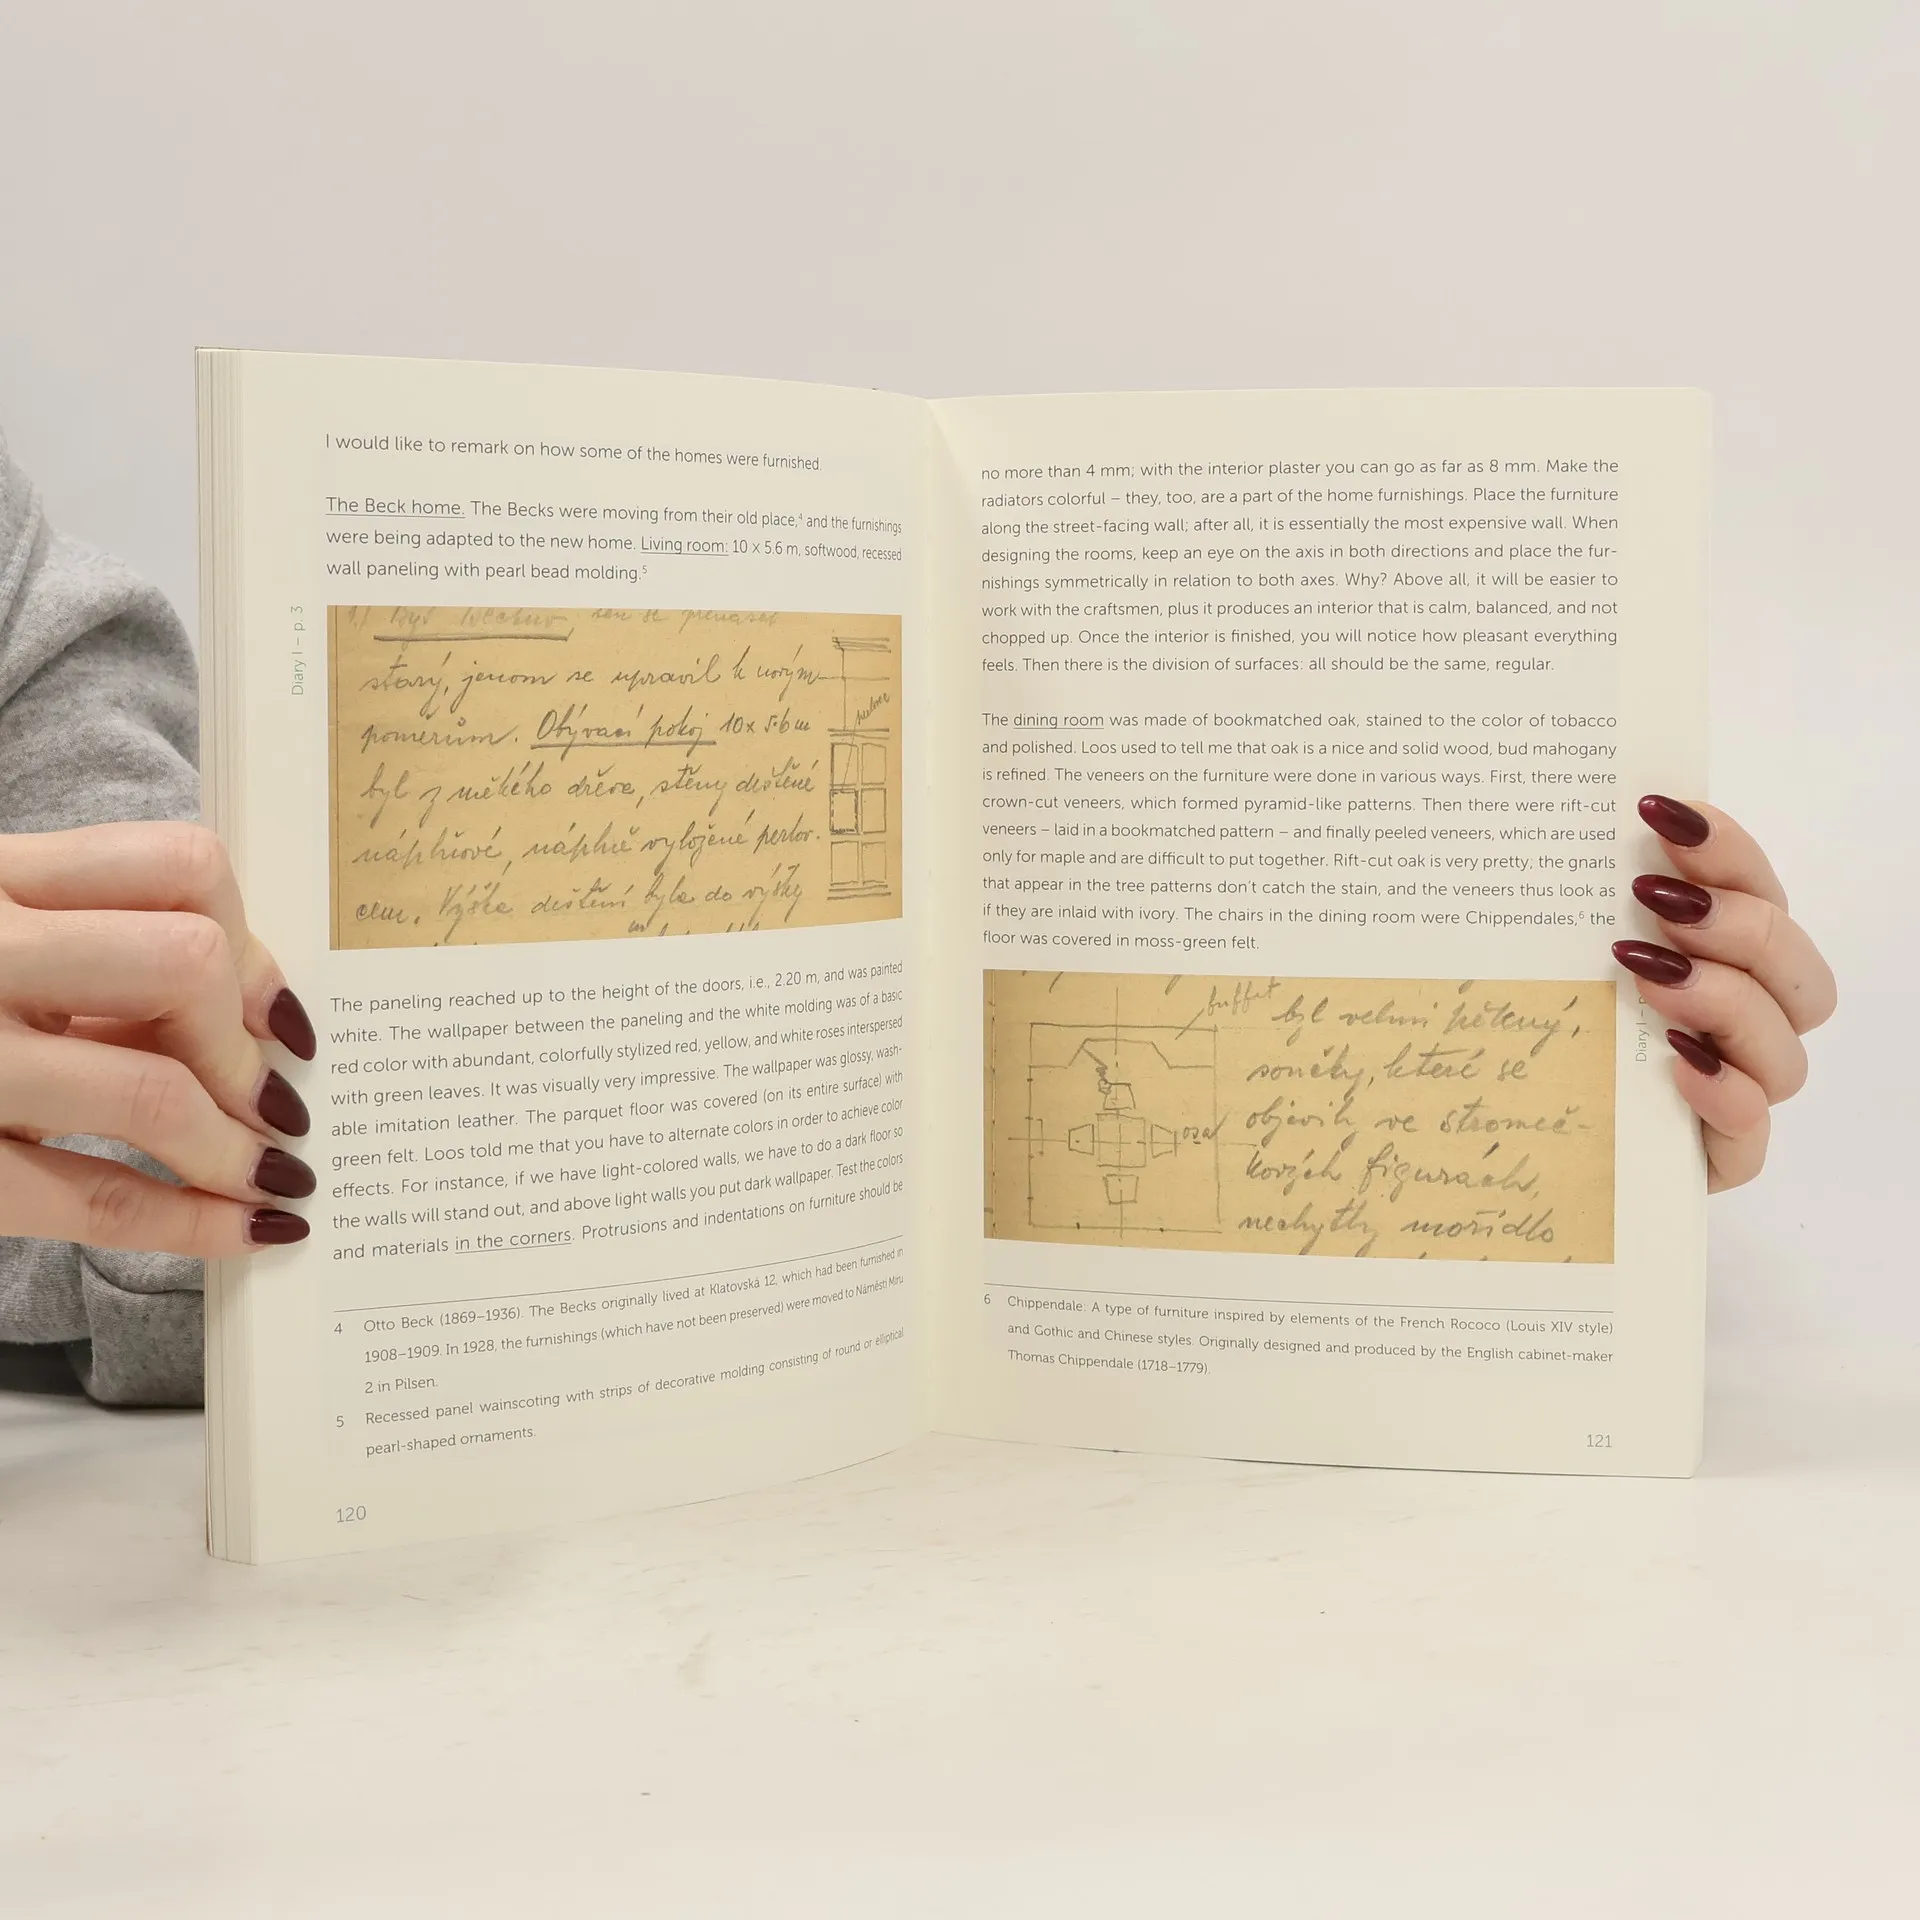 I would like to remark on how some of the homes were furnished.
The Beck home. The Becks were moving from their old place,⁴ and the furnishings
were being adapted to the new home. Living room: 10 x 5.6 m, softwood, recessed
wall paneling with pearl bead molding.⁵
Diary I – p. 3
starý, jenom se upravil k novým
poměrům. Obývací pokoj 10x5·6m
byl z měkého dřeva, stěny deštěné
náplňové, náplně vyložené perlov.
Výška deštění byla do výšky
The paneling reached up to the height of the doors, i.e., 2.20 m, and was painted
white. The wallpaper between the paneling and the white molding was of a basic
red color with abundant, colorfully stylized red, yellow, and white roses interspersed
with green leaves. It was visually very impressive. The wallpaper was glossy, wash-
able imitation leather. The parquet floor was covered (on its entire surface) with
green felt. Loos told me that you have to alternate colors in order to achieve color
effects. For instance, if we have light-colored walls, we have to do a dark floor so
the walls will stand out, and above light walls you put dark wallpaper. Test the colors
and materials in the corners. Protrusions and indentations on furniture should be
4 Otto Beck (1869–1936). The Becks originally lived at Klatovská 12, which had been furnished in
1908–1909. In 1928, the furnishings (which have not been preserved) were moved to Náměstí Míru
2 in Pilsen.
5 Recessed panel wainscoting with strips of decorative molding consisting of round or elliptical
pearl-shaped ornaments.
120
no more than 4 mm; with the interior plaster you can go as far as 8 mm. Make the
radiators colorful – they, too, are a part of the home furnishings. Place the furniture
along the street-facing wall; after all, it is essentially the most expensive wall. When
designing the rooms, keep an eye on the axis in both directions and place the fur-
nishings symmetrically in relation to both axes. Why? Above all, it will be easier to
work with the craftsmen, plus it produces an interior that is calm, balanced, and not
chopped up. Once the interior is finished, you will notice how pleasant everything
feels. Then there is the division of surfaces: all should be the same, regular.
The dining room was made of bookmatched oak, stained to the color of tobacco
and polished. Loos used to tell me that oak is a nice and solid wood, bud mahogany
is refined. The veneers on the furniture were done in various ways. First, there were
crown-cut veneers, which formed pyramid-like patterns. Then there were rift-cut
veneers – laid in a bookmatched pattern – and finally peeled veneers, which are used
only for maple and are difficult to put together. Rift-cut oak is very pretty; the gnarls
that appear in the tree patterns don't catch the stain, and the veneers thus look as
if they are inlaid with ivory. The chairs in the dining room were Chippendales,⁶ the
floor was covered in moss-green felt.
buffet
byl velmi pěkný,
součky, které se
osa
objevily ve stromeč-
kových figurách,
nechytly mořidlo
Diary I –
6 Chippendale: A type of furniture inspired by elements of the French Rococo (Louis XIV style)
and Gothic and Chinese styles. Originally designed and produced by the English cabinet-maker
Thomas Chippendale (1718–1779).
121